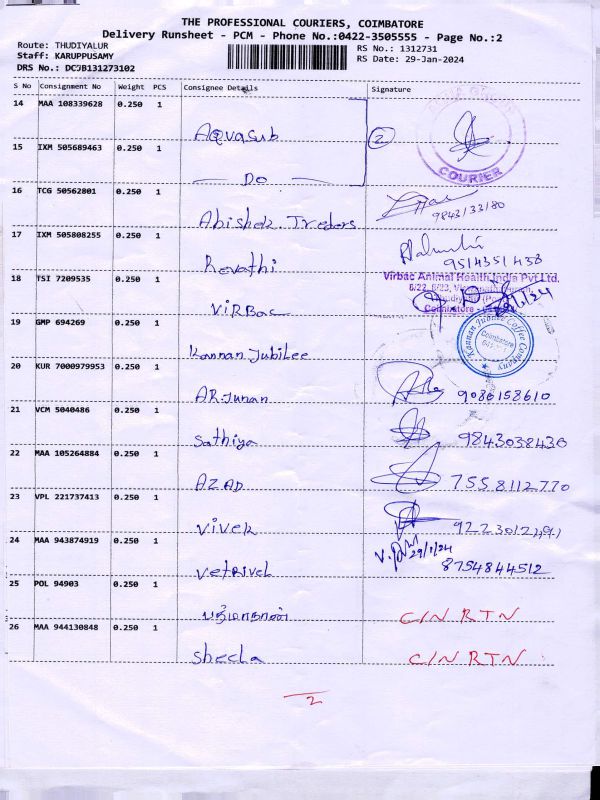 THE PROFESSIONAL COURIERS, COIMBATORE
Delivery Runsheet - PCM - Phone No.:0422-3505555 - Page No.:2
Route: THUDIYALUR
RS No.: 1312731
Staff: KARUPPUSAMY
RS Date: 29-Jan-2024
DRS No.: DCJB131273102
S No Consignment No Weight PCS Consignee Details Signature
14 MAA 108339628 0.250 1
Aqvasub 2
COURIER
15 IXM 505689463 0.250 1
Do
16 TCG 50562801 0.250 1
Abishek. Treders 9843133180
17 IXM 505808255 0.250 1
Revathi 9514351438
18 TSI 7209535 0.250 1
Virbac Animal Health India Pvt Ltd.
ViRBac
Coimbatore
19 GMP 694269 0.250 1
Kannan Jubilee Coffee Company
Coimbatore
Kannan Jubilee
20 KUR 7000979953 0.250 1
ARJunan 9086158610
21 VCM 5040486 0.250 1
Sathiya 9843038430
22 MAA 105264884 0.250 1
AZAD 7558112770
23 VPL 221737413 0.250 1
Vivek
24 MAA 943874919 0.250 1
29/1/24
Vetrivel 8754844512
25 POL 94903 0.250 1
பத்மநாபன் C/N RTN
26 MAA 944130848 0.250 1
Sheela C/N RTN
2